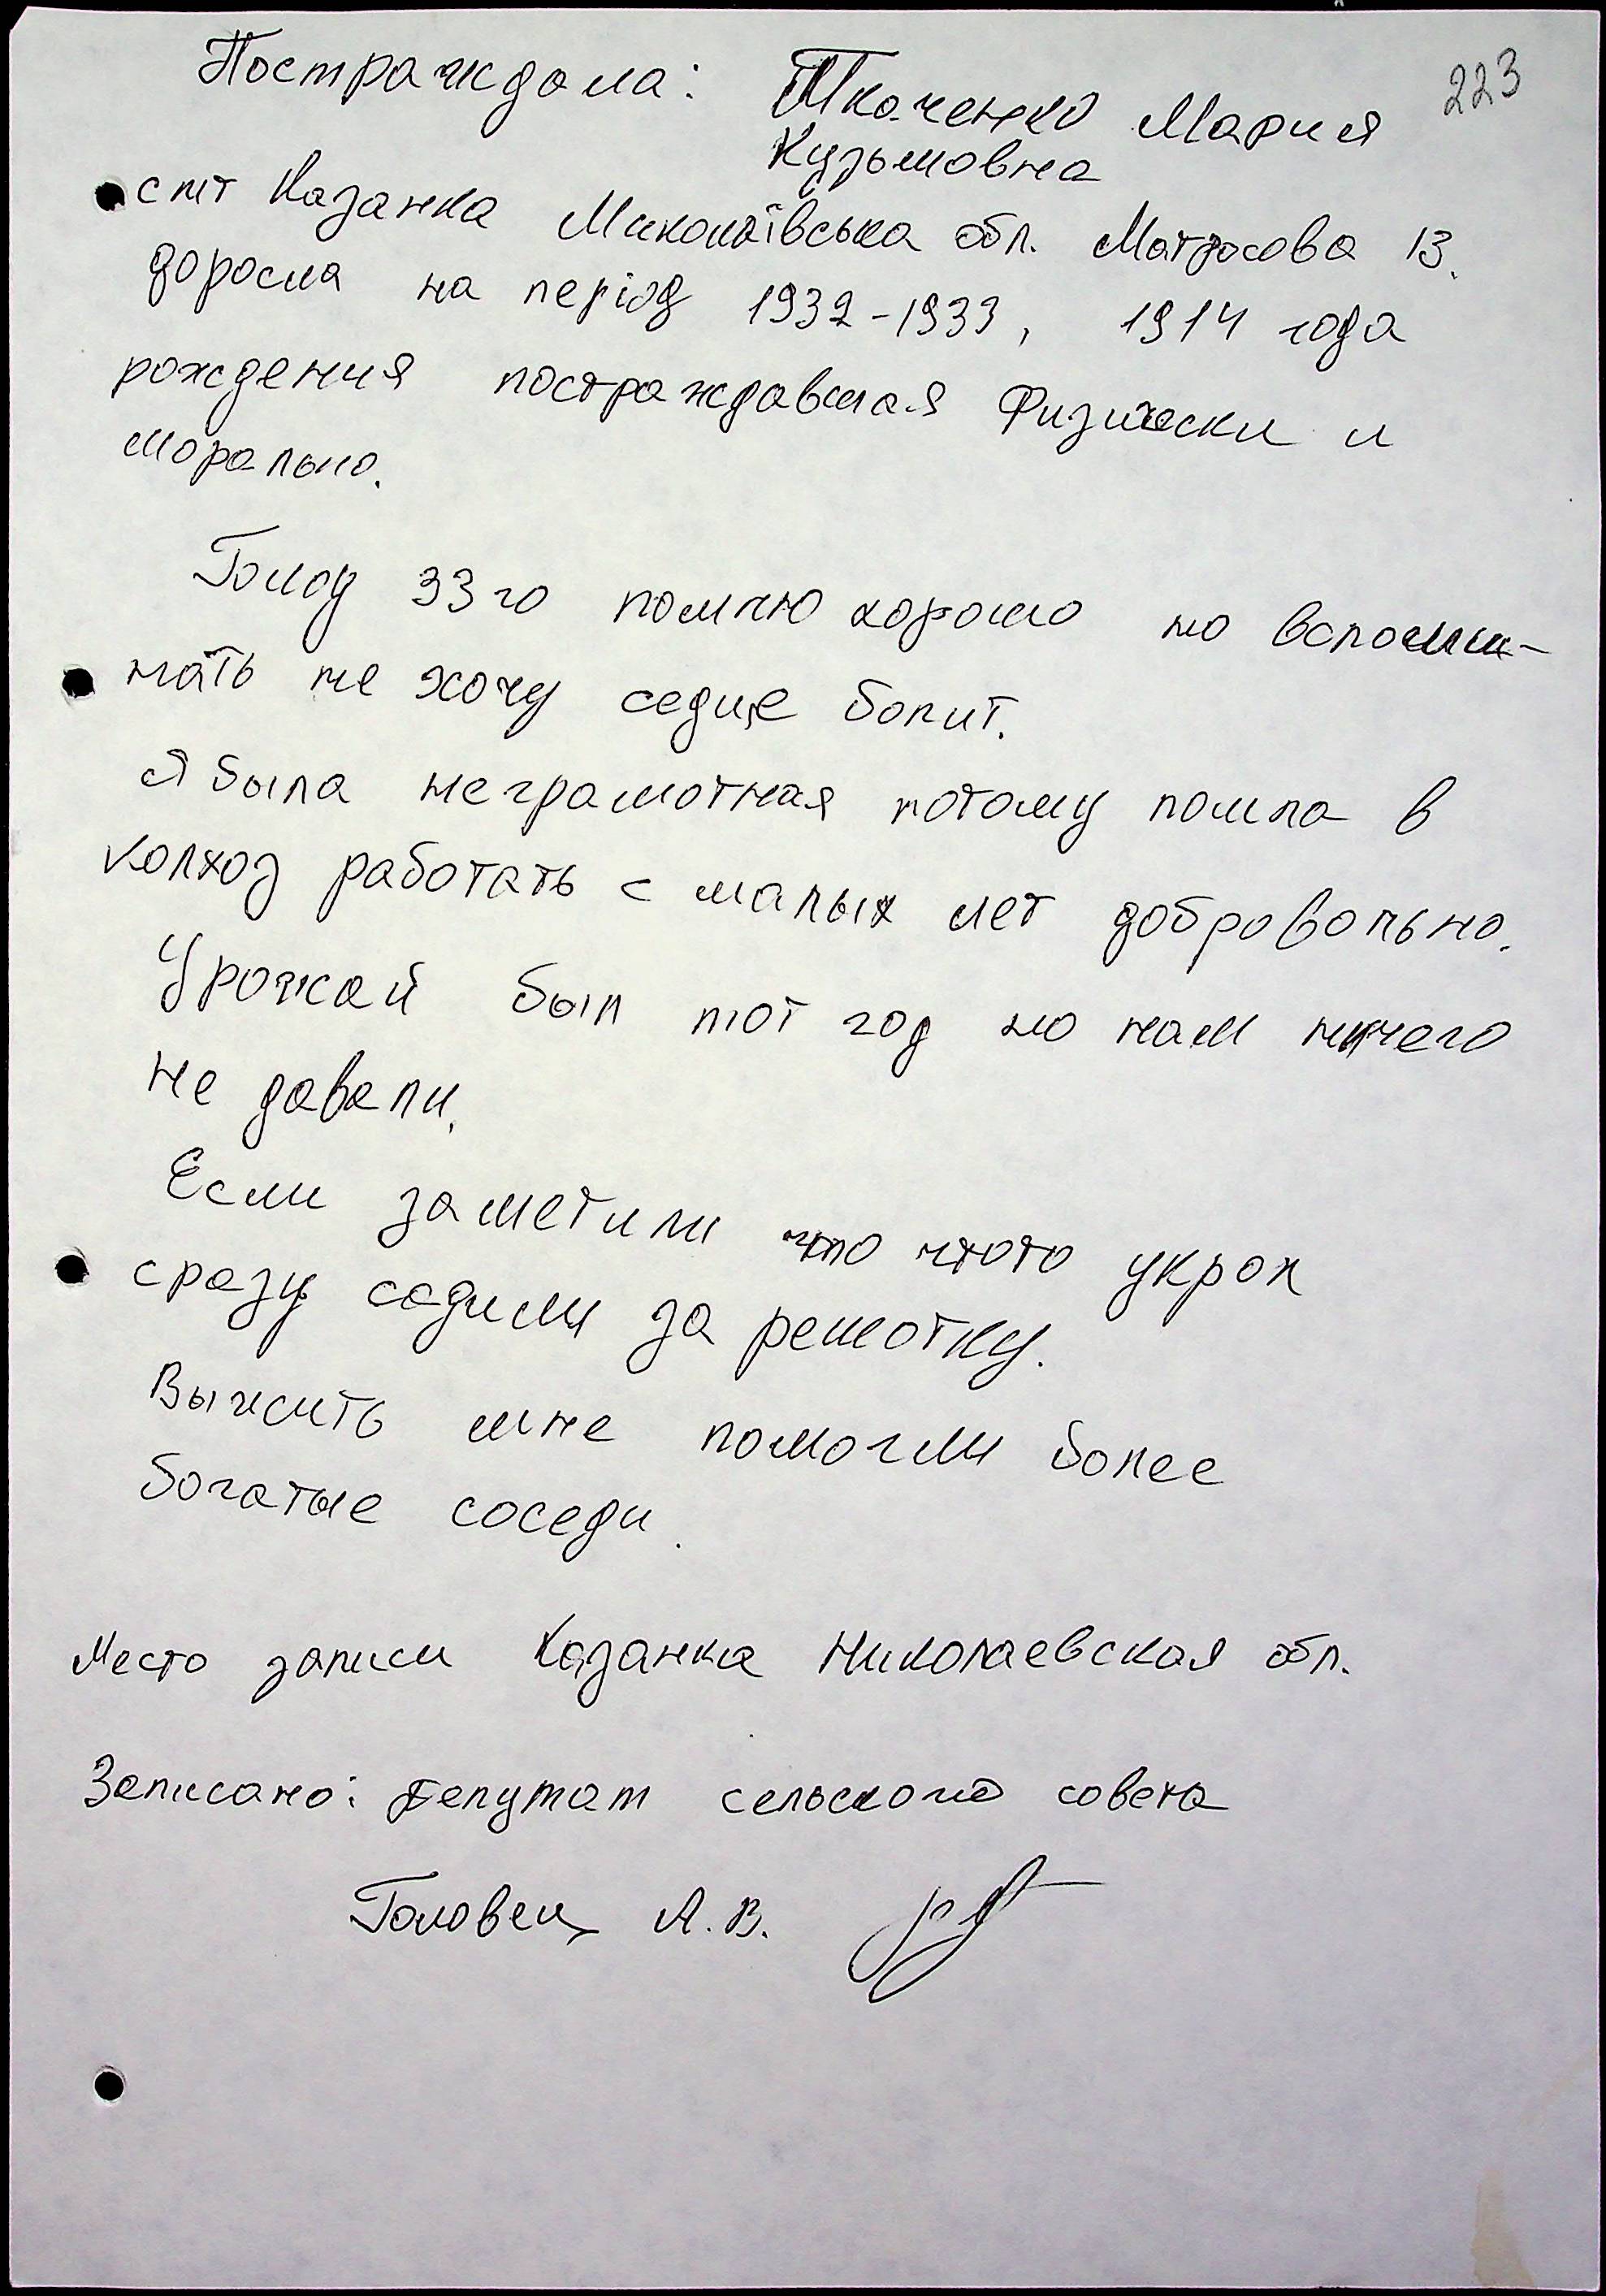 223
Постраждала: Ткаченко Мария
Кузьмовна
смт Казанка Миколаївська обл. Матросова 13.
доросла на період 1932-1933, 1914 года
рождения постраждавшая Физически и
морально.
Голод 33го помню хорошо но вспоми-
нать не хочу седце болит.
Я была неграмотная потому пошла в
колхоз работать с малых лет добровольно.
Урожай был тот год но нам ничего
не давали.
Если заметили что чтото украл
сразу садили за решотку.
Выжить мне помогли более
богатые соседи.
Место записи Казанка Николаевская обл.
Записано: Депутат сельского совета
Головец А.В.